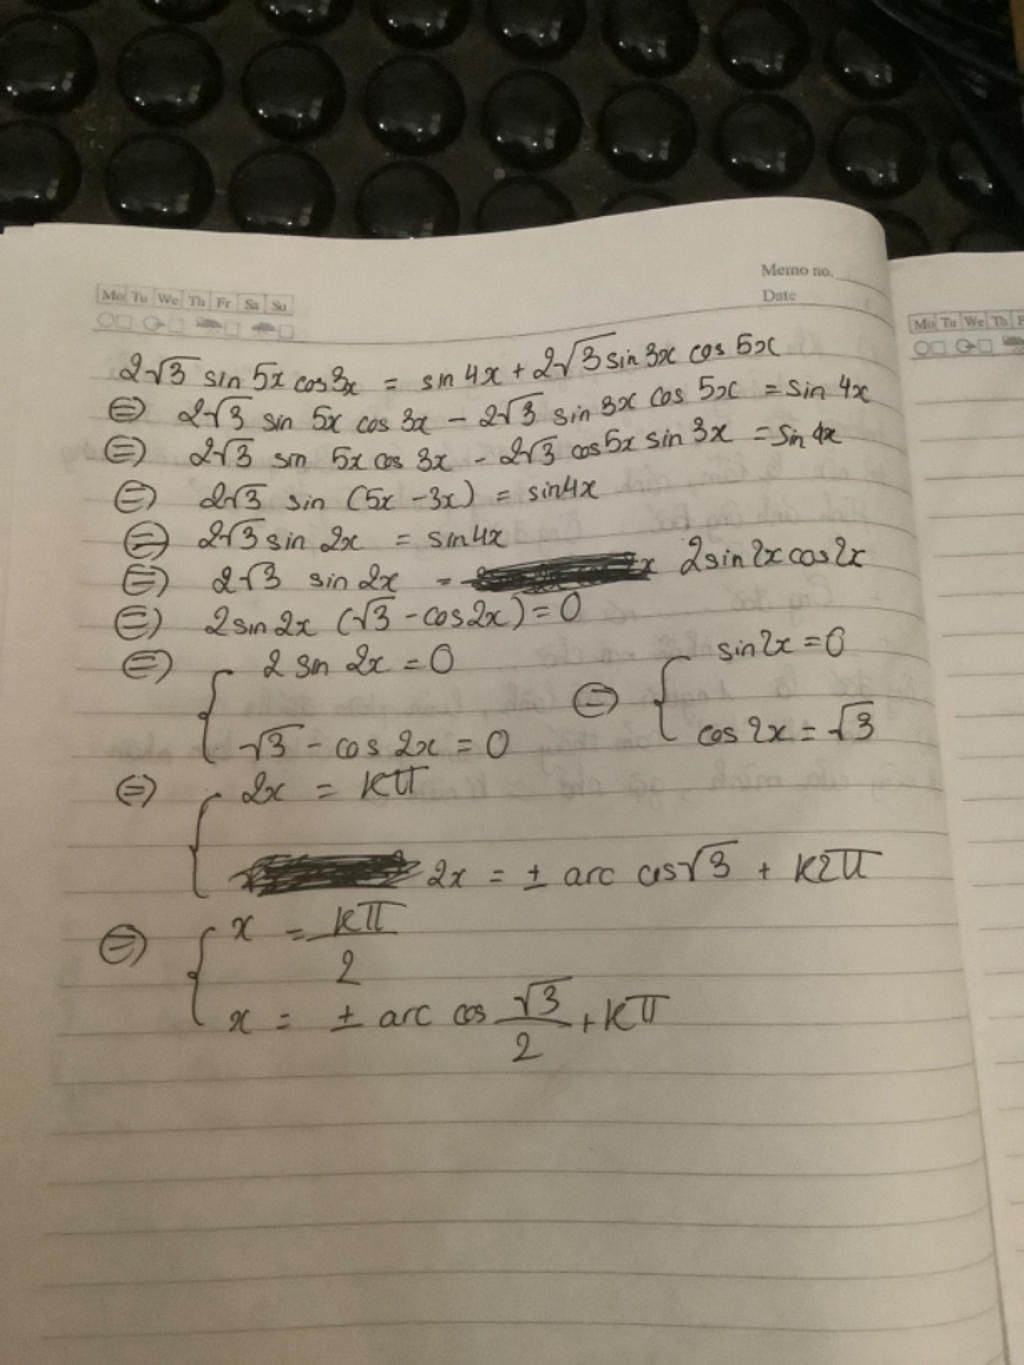 Memo no.
Date
Mo Tu We Th Fr Sa Su
Mo Tu We Th F
2√3 sin 5x cos3x = sin 4x + 2√3 sin 3x cos 5x
⇔ 2√3 sin 5x cos 3x - 2√3 sin 3x cos 5x = sin 4x
⇔ 2√3 sin 5x cos 3x - 2√3 cos 5x sin 3x = sin 4x
⇔ 2√3 sin (5x - 3x) = sin4x
⇔ 2√3 sin 2x = sin4x
⇔ 2√3 sin 2x = 2sin2x cos2x
⇔ 2sin2x (√3 - cos2x) = 0
⇔ { 2 sin 2x = 0 ⇔ { sin2x = 0
√3 - cos 2x = 0 cos 2x = √3
⇔ { 2x = kπ
2x = ± arc cos√3 + k2π
⇔ { x = kπ/2
x = ± arc cos √3/2 + kπ